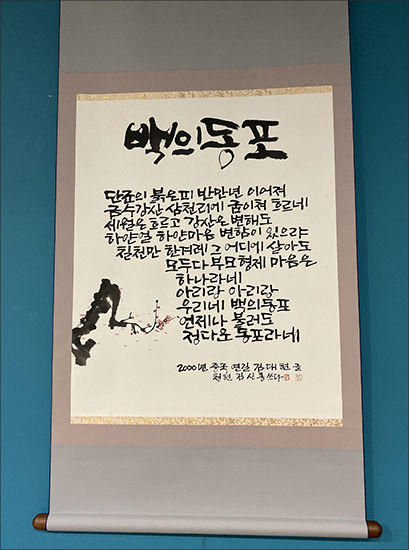 백의동포
단군의 붉은피 반만년 이어져
금수강산 삼천리에 굽이쳐 흐르네
세월은 흐르고 강산은 변해도
하얀결 하얀마음 변함이 있으랴
칠천만 한겨레 그 어디에 살아도
모두다 부모형제 마음은
하나라네
아리랑 아리랑
우리네 백의동포
언제나 불러도
정다운 동포라네
2000년 중국 연길 김대현 글
김신 쓰다